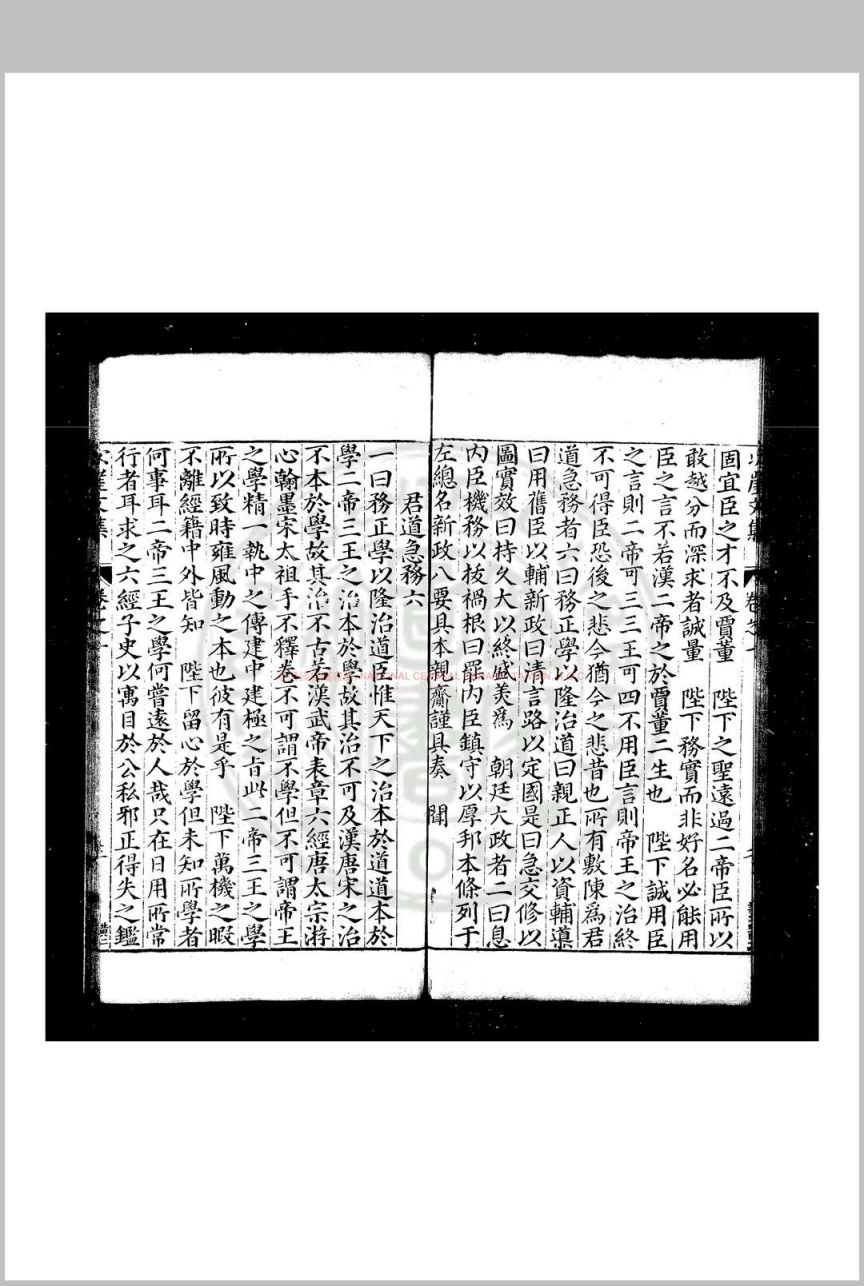 固宜臣之才不及賈董　陛下之聖遠過二帝臣所以
敢越分而深求者誠量　陛下務實而非好名必能用
臣之言不若漢二帝之於賈董二生也　陛下誠用臣
之言則二帝可三三王可四不用臣言則帝王之治終
不可得臣恐後之悲今猶今之悲昔也所有敷陳為君
道急務者六曰務正學以隆治道曰親正人以資輔導
曰用舊臣以輔新政曰清言路以定國是曰急交修以
圖實效曰持久大以終盛美爲　朝廷大政者二曰息
内臣機務以拔禍根曰罷内臣鎮守以厚邦本條列于
左總名新政八要具本親齎謹具奏　聞
君道急務六
一曰務正學以隆治道臣惟天下之治本於道道本於
學二帝三王之治本於學故其治不可及漢唐宋之治
不本於學故其治不古若漢武帝表章六經唐太宗游
心翰墨宋太祖手不釋卷不可謂不學但不可謂帝王
之學精一執中之傳建中建極之旨此二帝三王之學
所以致時雍風動之本也彼有是乎　陛下萬機之暇
不離經籍中外皆知　陛下留心於學但未知所學者
何事耳二帝三王之學何嘗遠於人哉只在日用所常
行者耳求之六經子史以寓目於公私邪正得失之鑑
文集
卷之